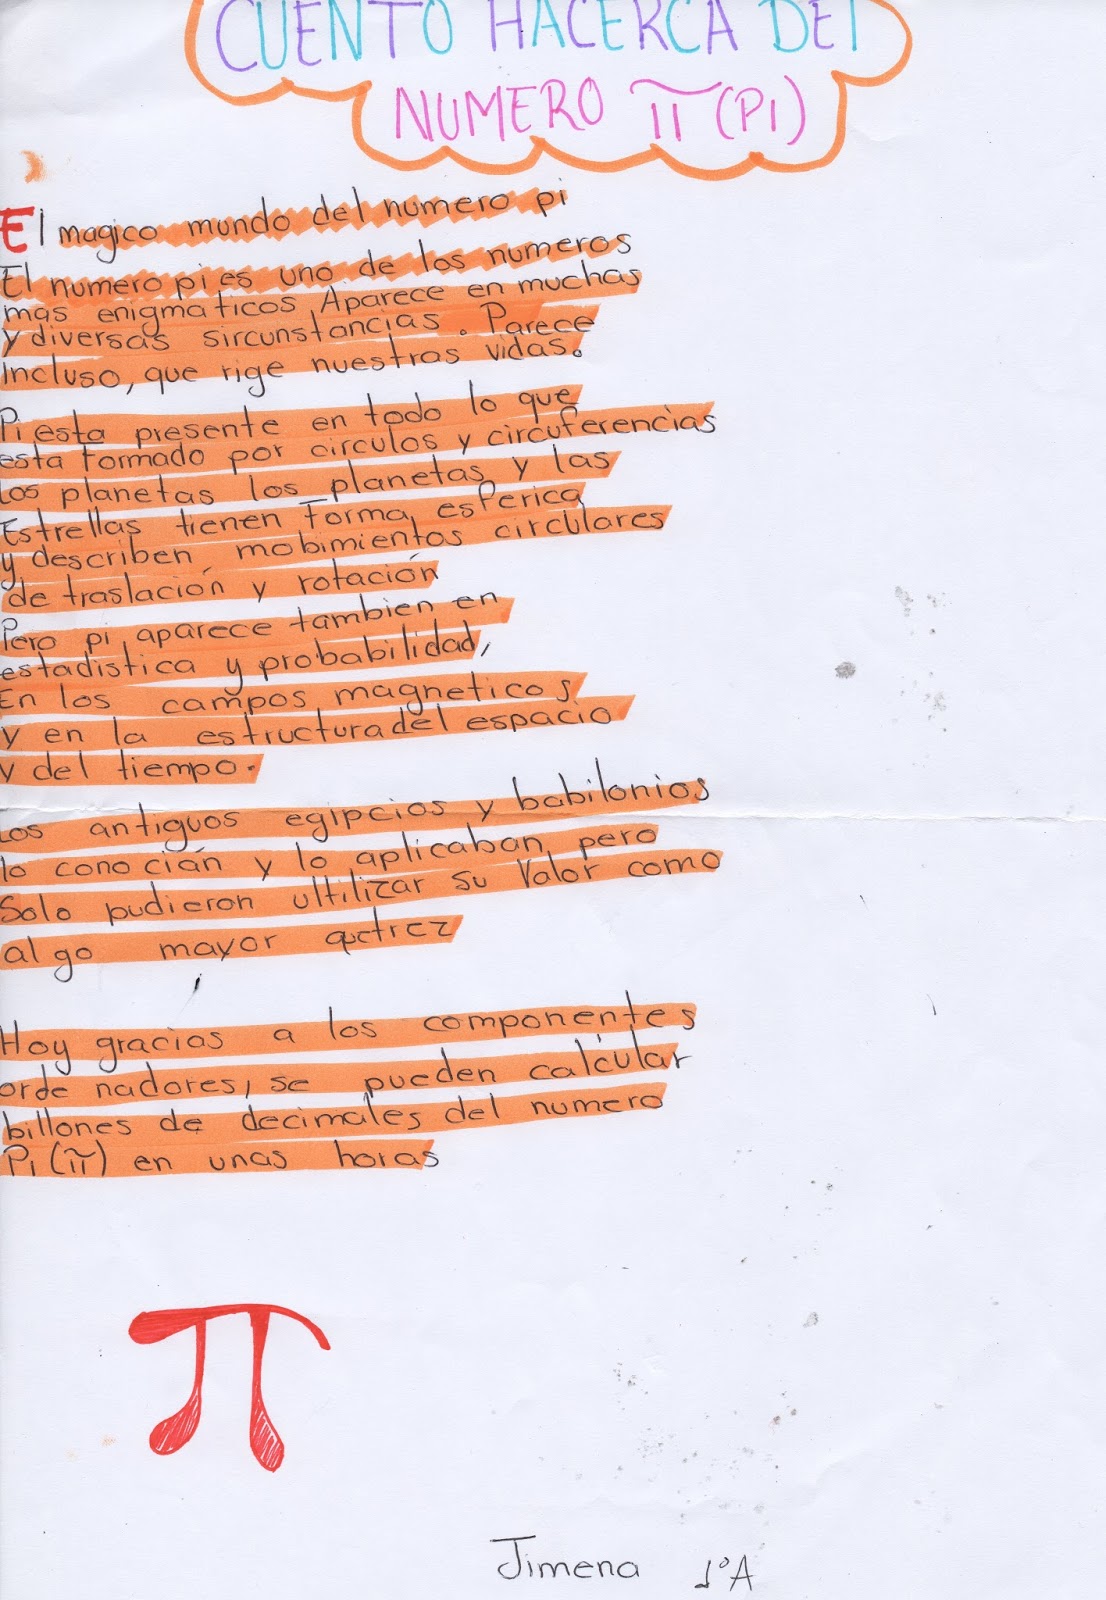 CUENTO HACERCA DEl
NUMERO π (PI)
El magico mundo del numero pi
El numero pi es uno de los numeros
mas enigmaticos Aparece en muchas
y diversas sircunstancias. Parece
incluso, que rige nuestras vidas.
Pi esta presente en todo lo que
esta formado por circulos y circuferencias
Los planetas los planetas y las
Estrellas tienen forma esferica
y describen mobimientos circulares
de traslación y rotación
Pero pi aparece tambien en
estadistica y probabilidad,
En los campos magneticos
y en la estructura del espacio
y del tiempo.
Los antiguos egipcios y babilonios
lo conocián y lo aplicaban pero
Solo pudieron ultilizar su valor como
algo mayor que trez
Hoy gracias a los componentes
orde nadores, se pueden calcular
billones de decimales del numero
Pi (π) en unas horas
π
Jimena 1°A